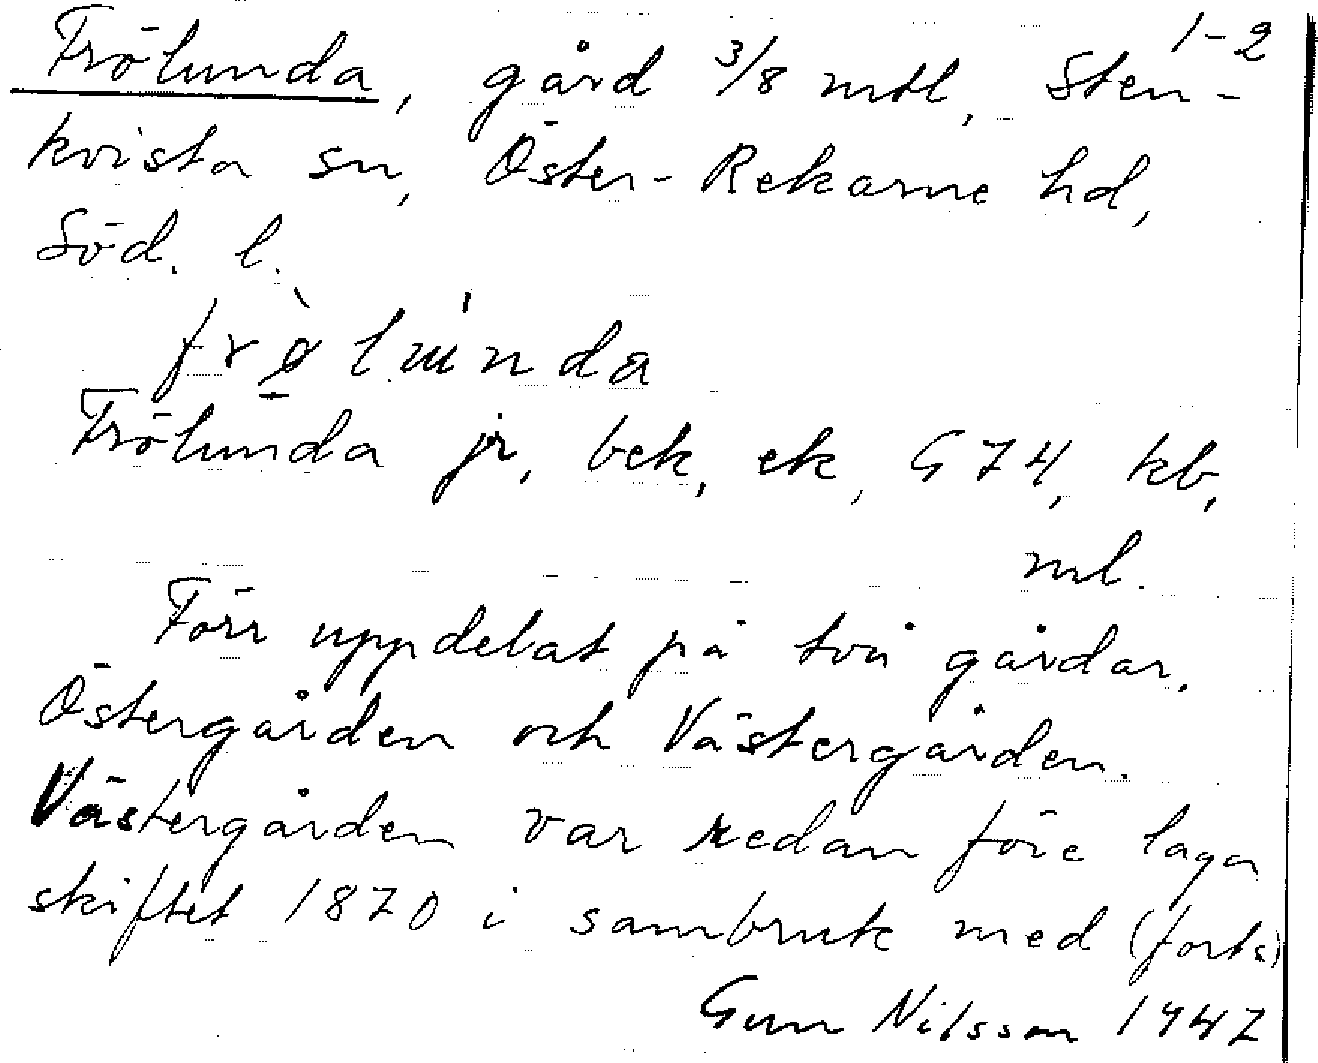 1-2
Frölunda, gård 3/8 mtl, Sten-
kvista sn, Öster-Rekarne hd,
Söd. l.
Frölunda jr, bek, ek, G 74, kb,
ml.
Förr uppdelat på två gårdar.
Östergården och Västergården.
Västergården var redan före laga
skiftet 1870 i sambruk med (forts)
Gun Nilsson 1947